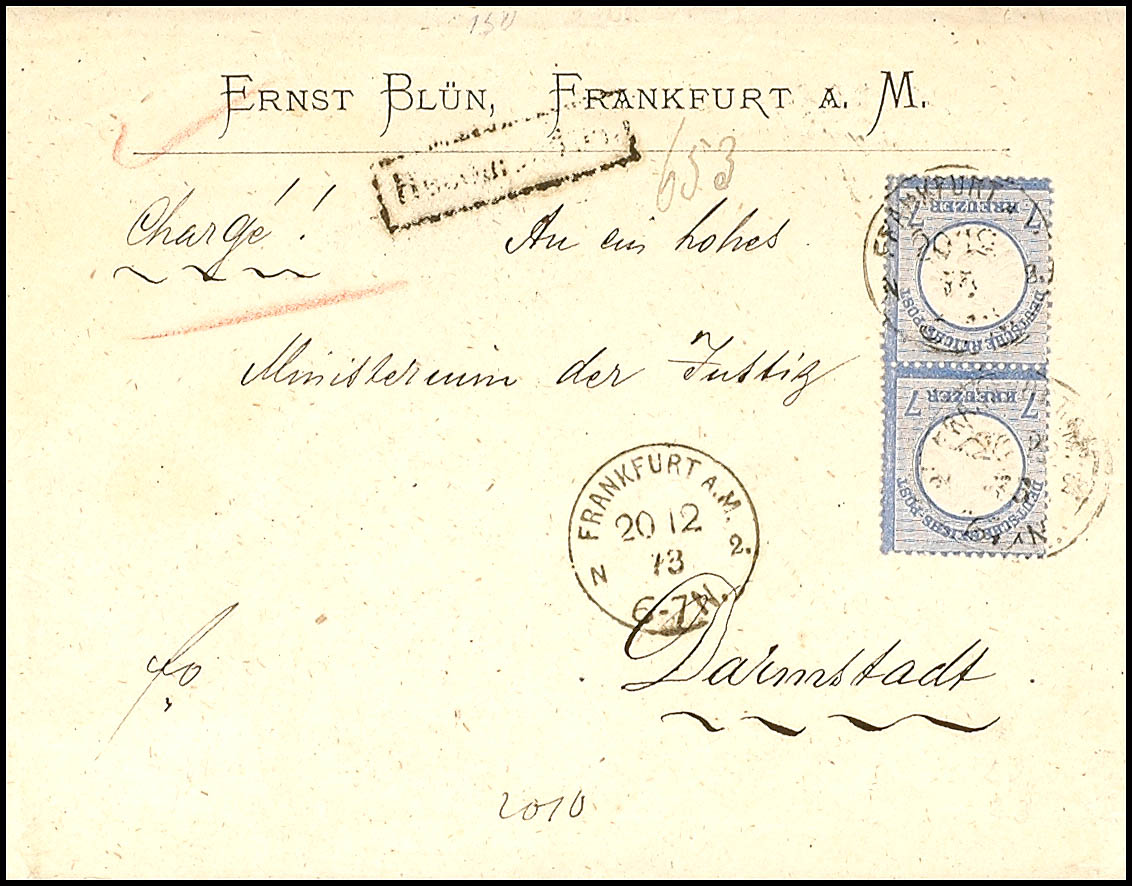 150
ERNST BLÜN, FRANKFURT A. M.
653
Chargé!
An ein hohes
Ministerium der Justiz
FRANKFURT
7 7
KREUZER
DEUTSCHE REICHS-POST
7 7
KREUZER
DEUTSCHE REICHS-POST
FRANKFURT A.M.
20 12
73
N 2.
6-7N.
Darmstadt.
fo
2010